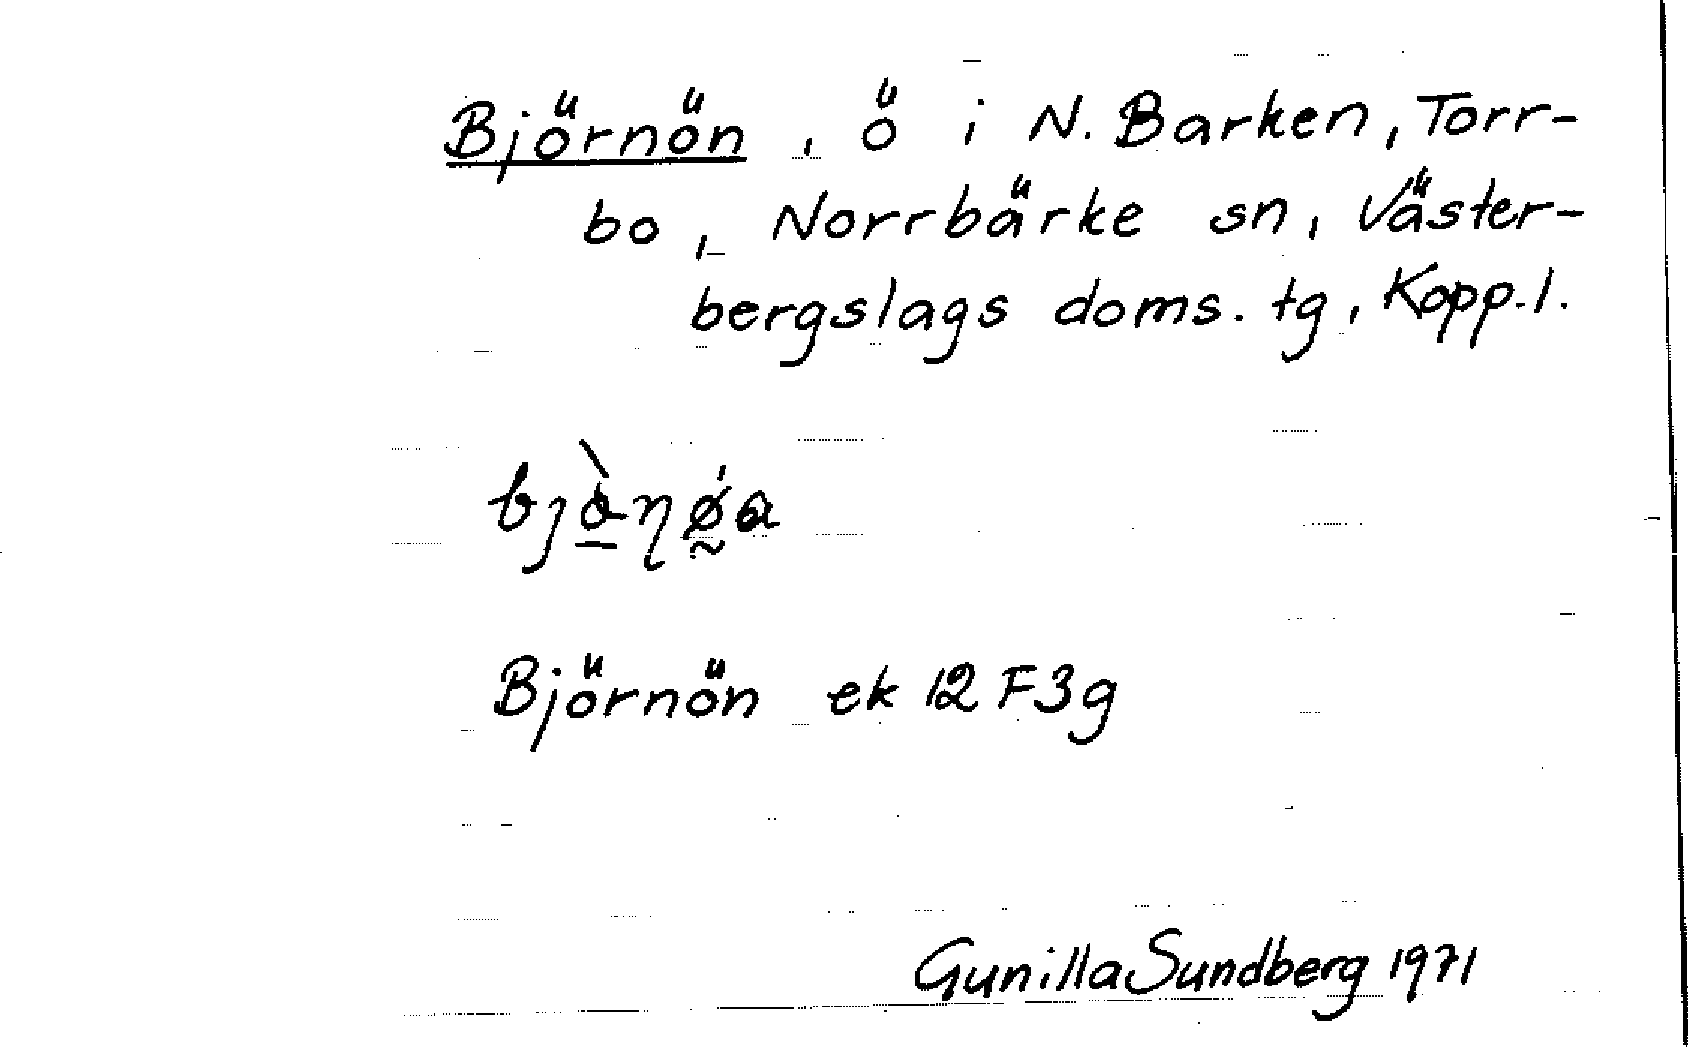 Björnön, ö i N. Barken, Torr-
bo, Norrbärke sn, Väster-
bergslags doms. tg, Kopp. l.
Björnön ek 12 F3g
Gunilla Sundberg 1971